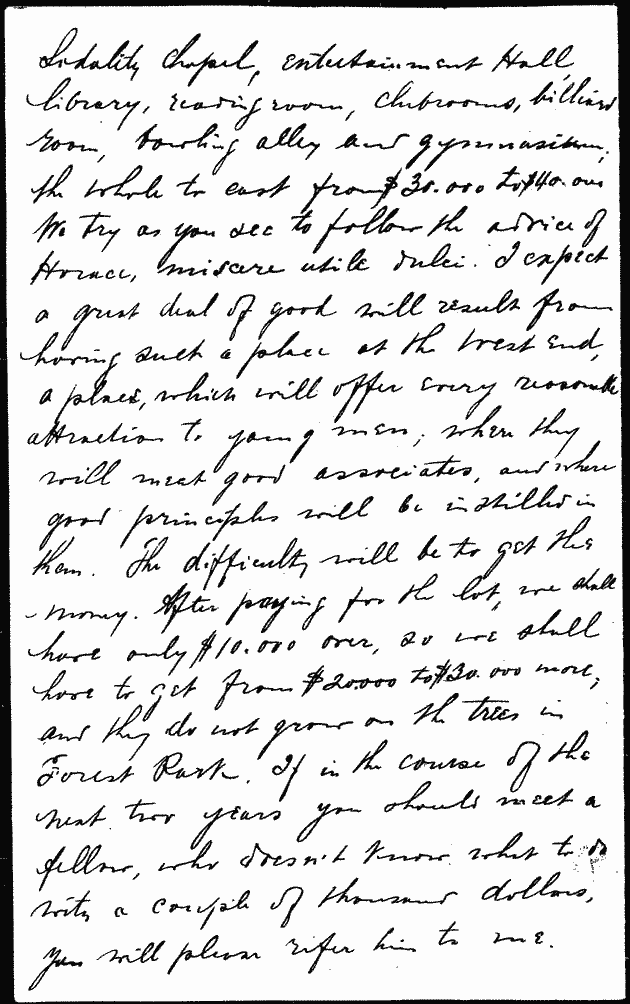 Sodality Chapel, entertainment Hall,
library, reading room, clubrooms, billiard
room, bowling alley and gymnasium,
the whole to cost from $30.000 to $40.000
We try as you see to follow the advice of
Horace, miscere utile dulci. I expect
a great deal of good will result from
having such a place at the West End,
a place, which will offer every reasonable
attraction to young men, where they
will meat good associates, and where
good principles will be instilled in
them. The difficulty will be to get the
money. After paying for the lot, we shall
have only $10.000 over, so we shall
have to get from $20.000 to $30.000 more,
and they do not grow on the trees in
Forest Park. If in the course of the
next two years you should meet a
fellow, who doesn't know what to do
with a couple of thousand dollars,
you will please refer him to me.